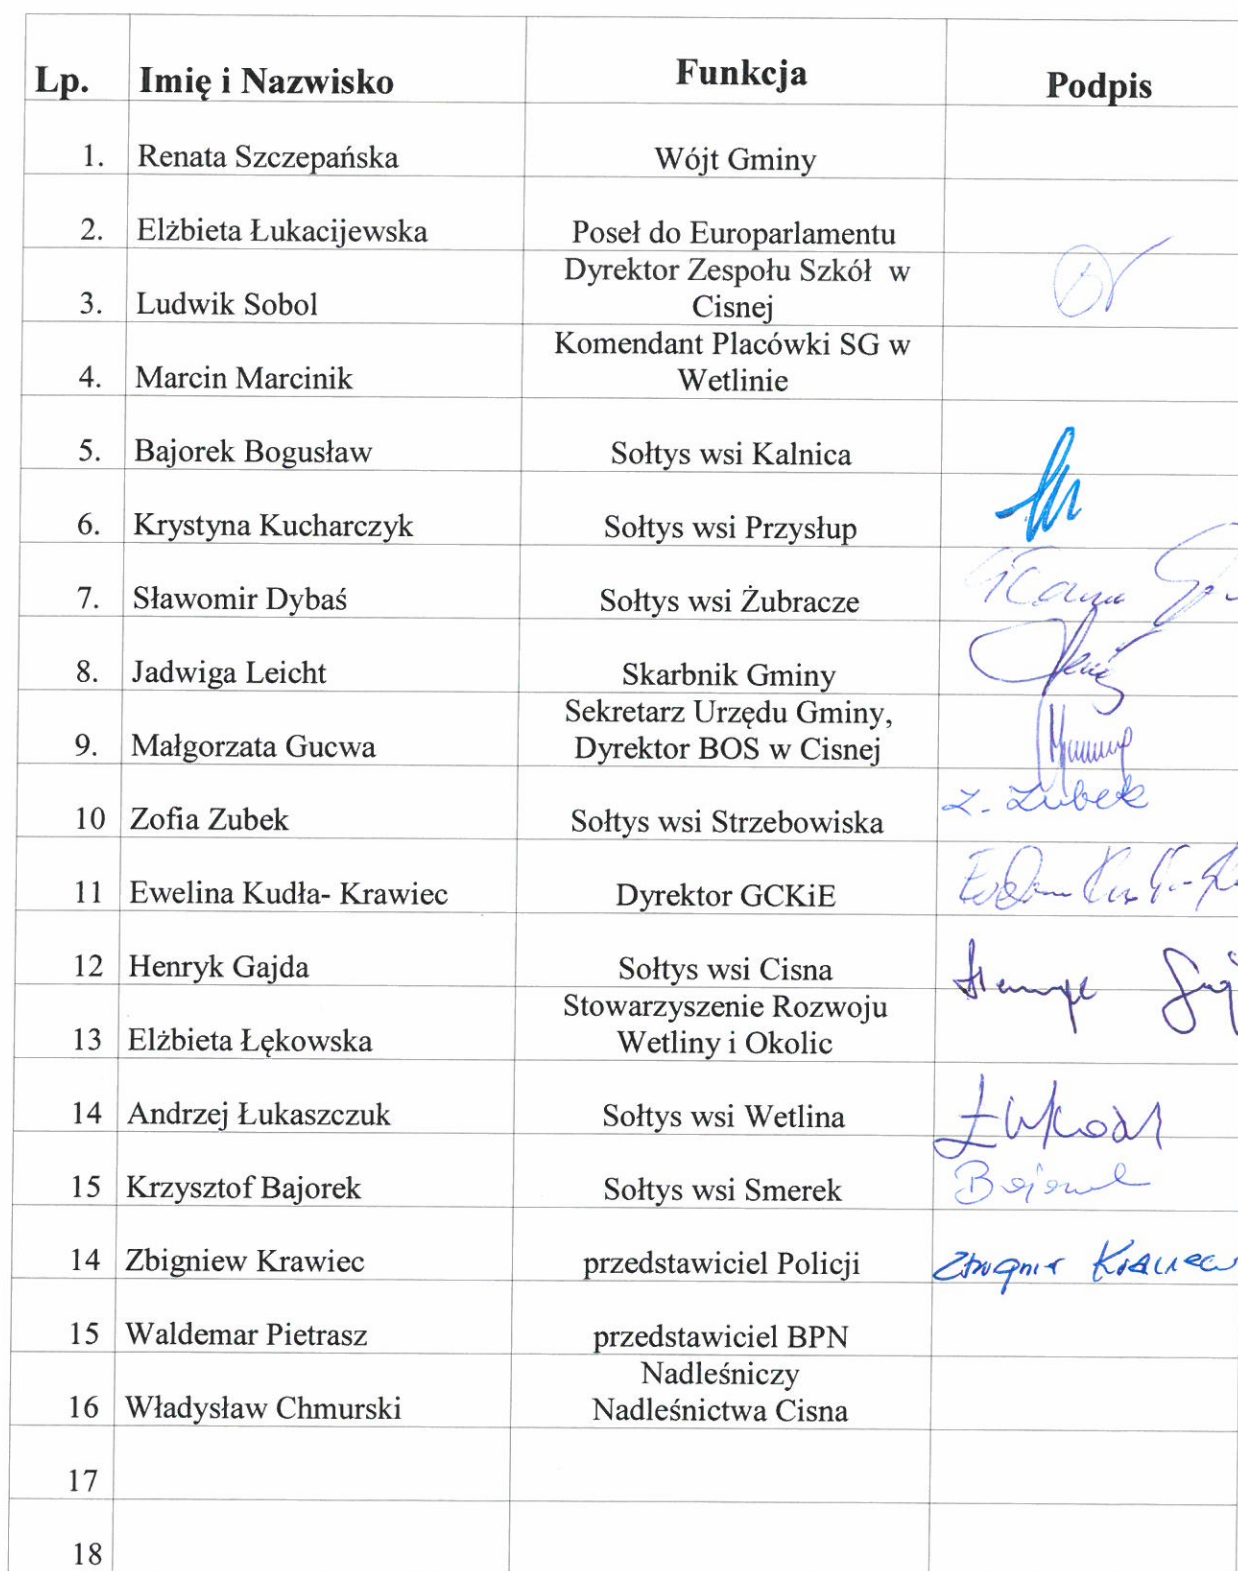 Lp. Imię i Nazwisko Funkcja Podpis
1. Renata Szczepańska Wójt Gminy
2. Elżbieta Łukacijewska Poseł do Europarlamentu
3. Ludwik Sobol Dyrektor Zespołu Szkół w
Cisnej
4. Marcin Marcinik Komendant Placówki SG w
Wetlinie
5. Bajorek Bogusław Sołtys wsi Kalnica
6. Krystyna Kucharczyk Sołtys wsi Przysłup
7. Sławomir Dybaś Sołtys wsi Żubracze
8. Jadwiga Leicht Skarbnik Gminy
9. Małgorzata Gucwa Sekretarz Urzędu Gminy,
Dyrektor BOS w Cisnej
10 Zofia Zubek Sołtys wsi Strzebowiska Z. Zubek
11 Ewelina Kudła- Krawiec Dyrektor GCKiE
12 Henryk Gajda Sołtys wsi Cisna Henryk
13 Elżbieta Łękowska Stowarzyszenie Rozwoju
Wetliny i Okolic
14 Andrzej Łukaszczuk Sołtys wsi Wetlina
15 Krzysztof Bajorek Sołtys wsi Smerek Bajorek
14 Zbigniew Krawiec przedstawiciel Policji Zbigniew Krawiec
15 Waldemar Pietrasz przedstawiciel BPN
16 Władysław Chmurski Nadleśniczy
Nadleśnictwa Cisna
17
18